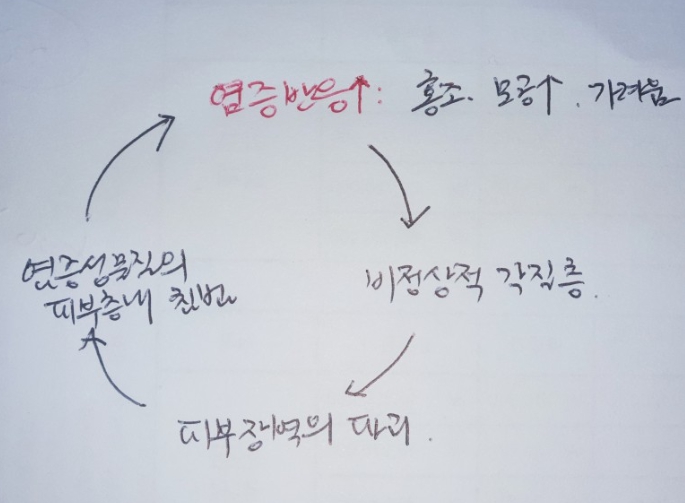 염증반응↑: 홍조. 모공↑. 가려움
비정상적 각질층.
피부장벽의 파괴.
염증성물질의
피부층내 침범.